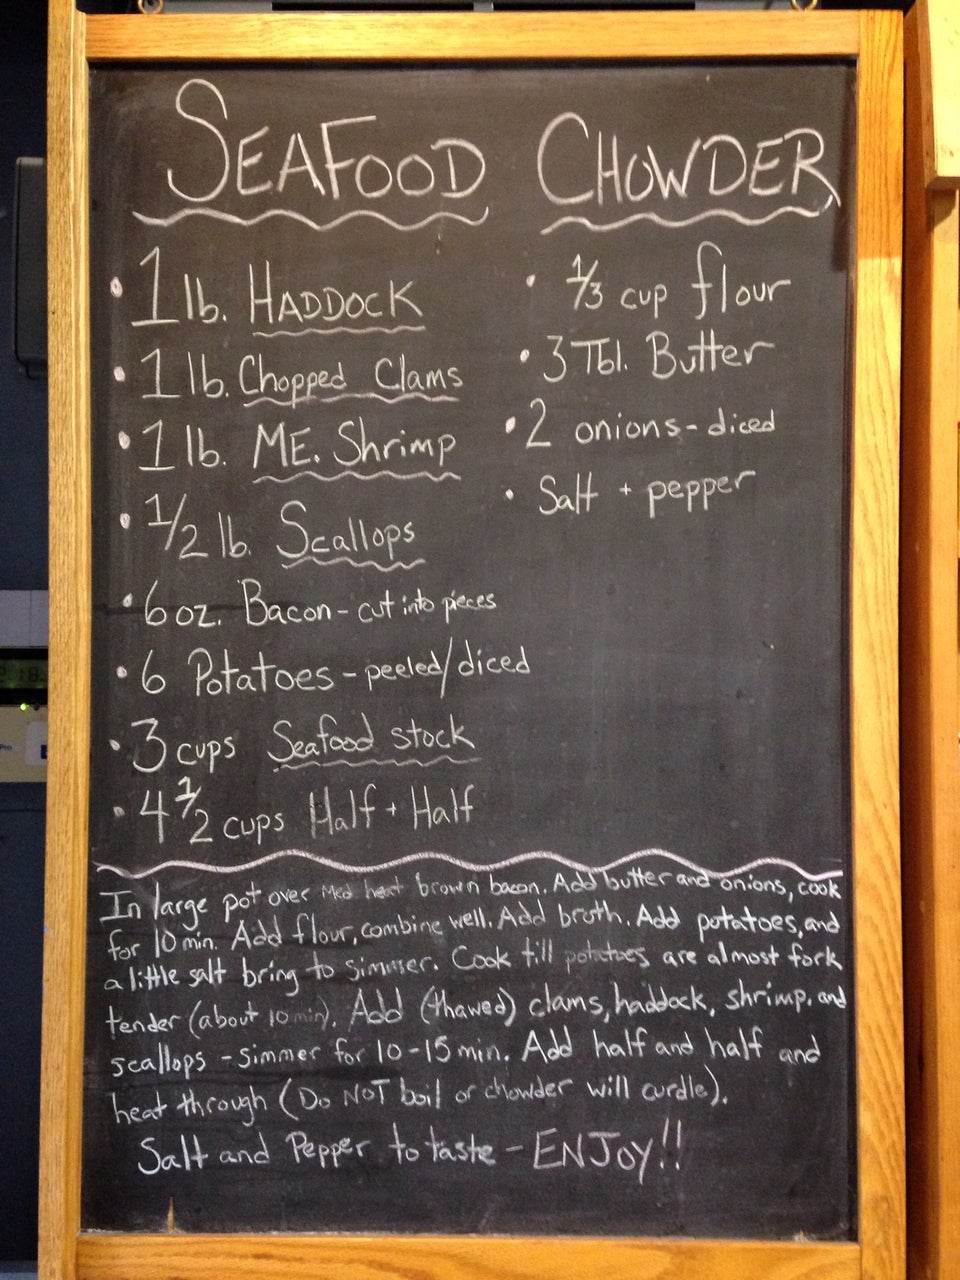 SEAFOOD CHOWDER
• 1 lb. HADDOCK
• 1 lb. Chopped Clams
• 1 lb. ME. Shrimp
• 1/2 lb. Scallops
• 6 oz. Bacon - cut into pieces
• 6 Potatoes - peeled/diced
• 3 cups Seafood stock
• 4 1/2 cups Half + Half
• 1/3 cup flour
• 3 Tbl. Butter
• 2 onions - diced
• Salt + pepper
In large pot over Med heat brown bacon. Add butter and onions, cook
for 10 min. Add flour, combine well. Add broth. Add potatoes, and
a little salt bring to simmer. Cook till potatoes are almost fork
tender (about 10 min). Add (thawed) clams, haddock, shrimp, and
scallops - simmer for 10-15 min. Add half and half and
heat through (Do NOT boil or chowder will curdle).
Salt and Pepper to taste - ENJOY!!